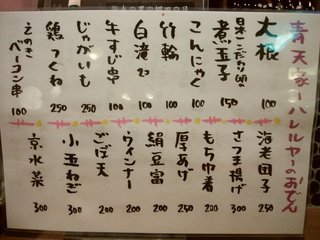 青天家〜ハレルヤーのおでん
大根 100
日本一こだわり卵の
煮玉子 150
こんにゃく 100
竹輪 100
白滝 100
牛すじ串 100
じゃがいも 250
鶏つくね 250
えのき
ベーコン串 180
海老団子 250
さつま揚げ 200
もち巾着 200
厚あげ 250
絹豆富 200
ウィンナー 200
ごぼ天 200
小玉ねぎ 300
京水菜 300